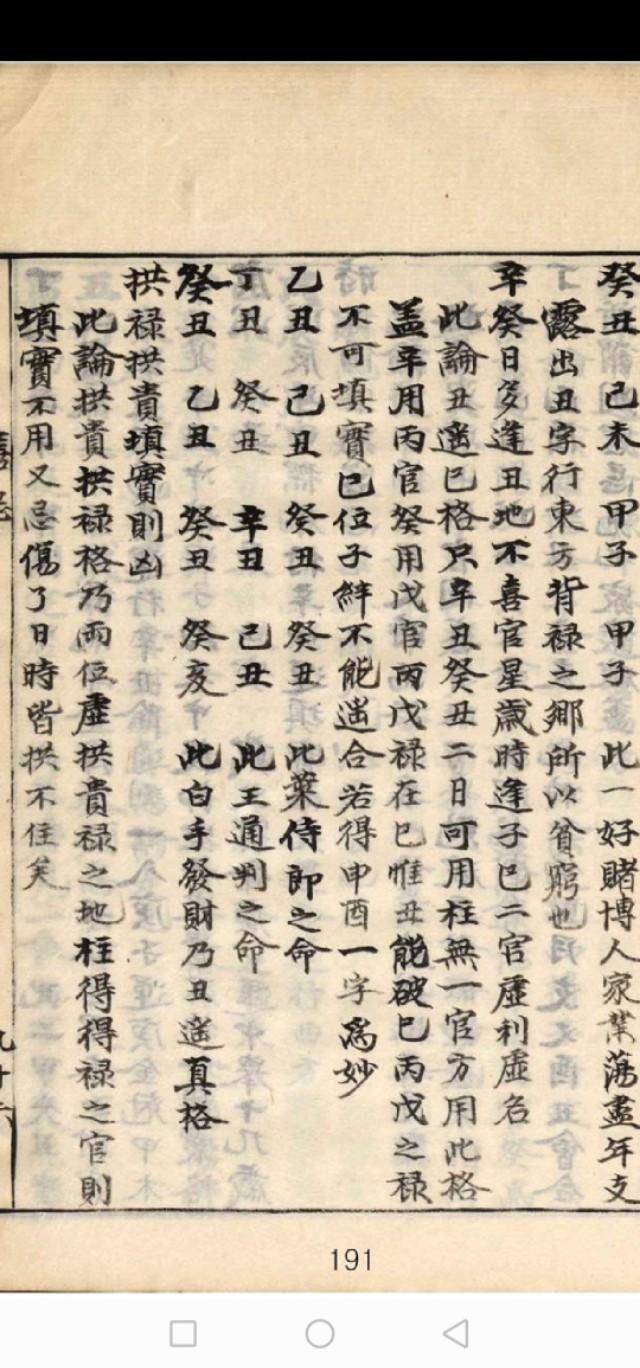 癸丑 己未 甲子 甲子 此一好賭博人家業蕩盡年支
露出丑字行東方背祿之鄉所以貧窮也
辛癸日多逢丑地不喜官星歲時逢子巳二官虛利虛名
此論丑遙巳格只辛丑癸丑二日可用柱無一官方用此格
蓋辛用丙官癸用戊官丙戊祿在巳惟丑能破巳丙戊之祿
不可填實巳位子絆不能遙合若得申酉一字為妙
乙丑 己丑 癸丑 癸丑 此葉侍郎之命
丁丑 癸丑 辛丑 己丑 此王通判之命
癸丑 乙丑 癸丑 癸亥 此白手發財乃丑遙真格
拱祿拱貴填實則凶
此論拱貴拱祿格乃兩位虛拱貴祿之地柱得得祿之官則
填實不用又忌傷了日時皆拱不住矣
九十六
191